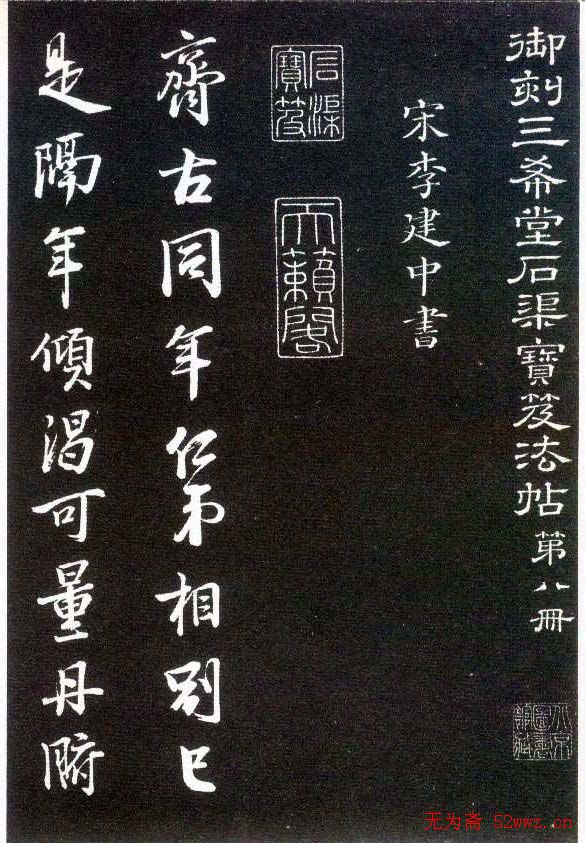 御刻三希堂石渠寶笈法帖第八冊
宋李建中書
石渠寶笈
天籟閣
齊古同年仁弟相別已
是隔年傾渴可量丹腑
无为斋 52wwz.cn